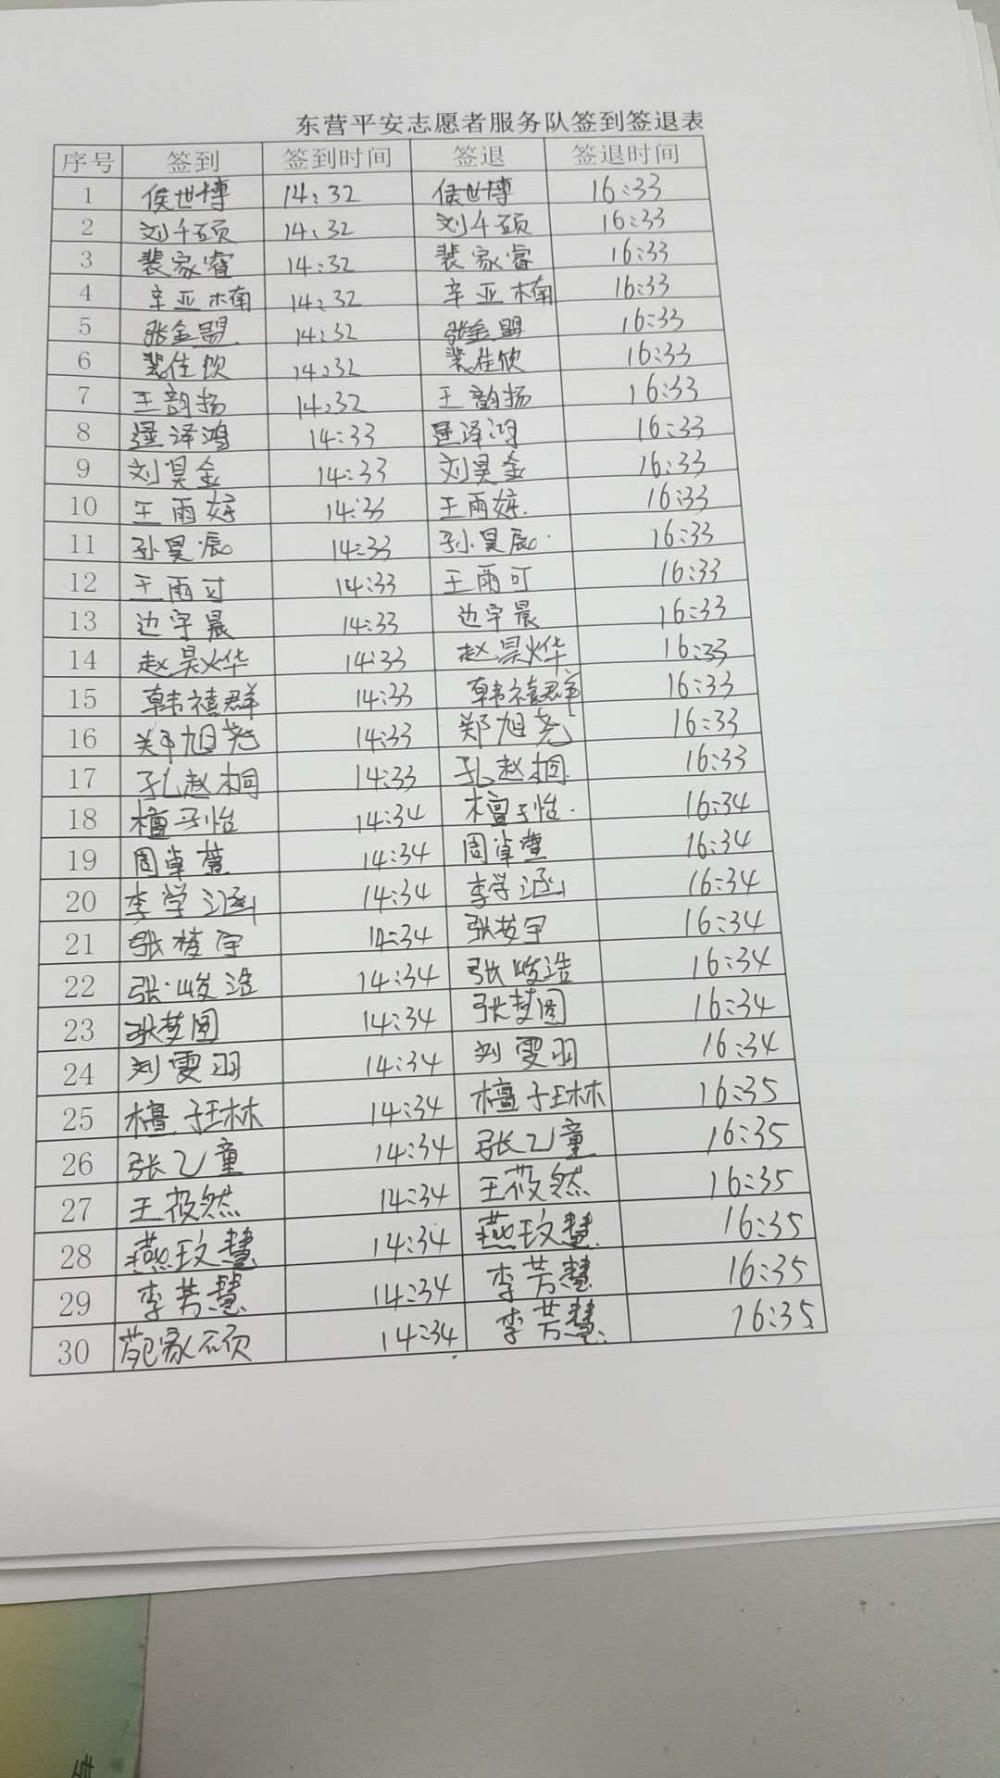 东营平安志愿者服务队签到签退表
序号 签到 签到时间 签退 签退时间
1 侯世博 14:32 侯世博 16:33
2 刘千硕 14:32 刘千硕 16:33
3 裴家睿 14:32 裴家睿 16:33
4 辛亚楠 14:32 辛亚楠 16:33
5 张金盟 14:32 张金盟 16:33
6 裴佳欣 14:32 裴佳欣 16:33
7 王韵扬 14:32 王韵扬 16:33
8 泽鸿 14:33 泽鸿 16:33
9 刘昊金 14:33 刘昊金 16:33
10 王雨婷 14:33 王雨婷 16:33
11 孙昊辰 14:33 孙昊辰 16:33
12 王雨可 14:33 王雨可 16:33
13 边宇晨 14:33 边宇晨 16:33
14 赵昊烨 14:33 赵昊烨 16:33
15 韩禧群 14:33 韩禧群 16:33
16 郑旭尧 14:33 郑旭尧 16:33
17 孔赵桐 14:33 孔赵桐 16:33
18 檀子怡 14:34 檀子怡 16:34
19 周卓萱 14:34 周卓萱 16:34
20 李学涵 14:34 李学涵 16:34
21 张楚宇 14:34 张宇 16:34
22 张峻浩 14:34 张峻浩 16:34
23 张梦圆 14:34 张梦圆 16:34
24 刘雯羽 14:34 刘雯羽 16:34
25 檀子琳 14:34 檀子琳 16:35
26 张乙童 14:34 张乙童 16:35
27 王筱然 14:34 王筱然 16:35
28 燕玟慧 14:34 燕玟慧 16:35
29 李芳慧 14:34 李芳慧 16:35
30 苑家硕 14:34 李芳慧 16:35